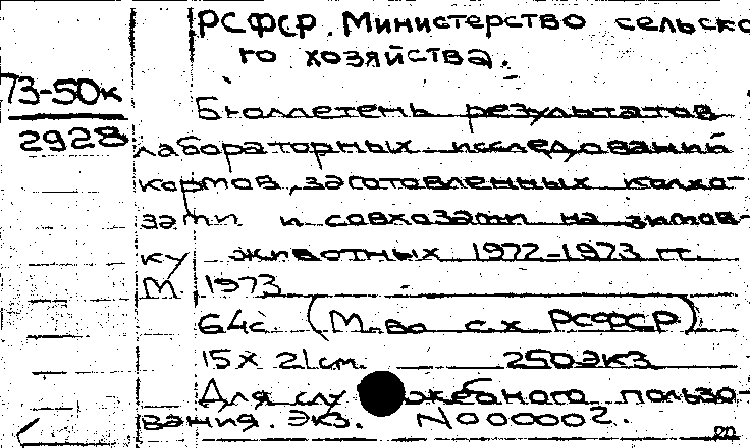 РСФСР. Министерство сельско
го хозяйства.
73-50к
2928
Бюллетень результатов
лабораторных исследований
кормов, заготовленных колхо-
зами и совхозами на зимов-
ку животных 1972-1973 гг.
М. 1973
64с. (М-во с.х РСФСР)
15 х 21 см. 250 экз
Для служебного пользо-
вания. Экз. №000002.
20